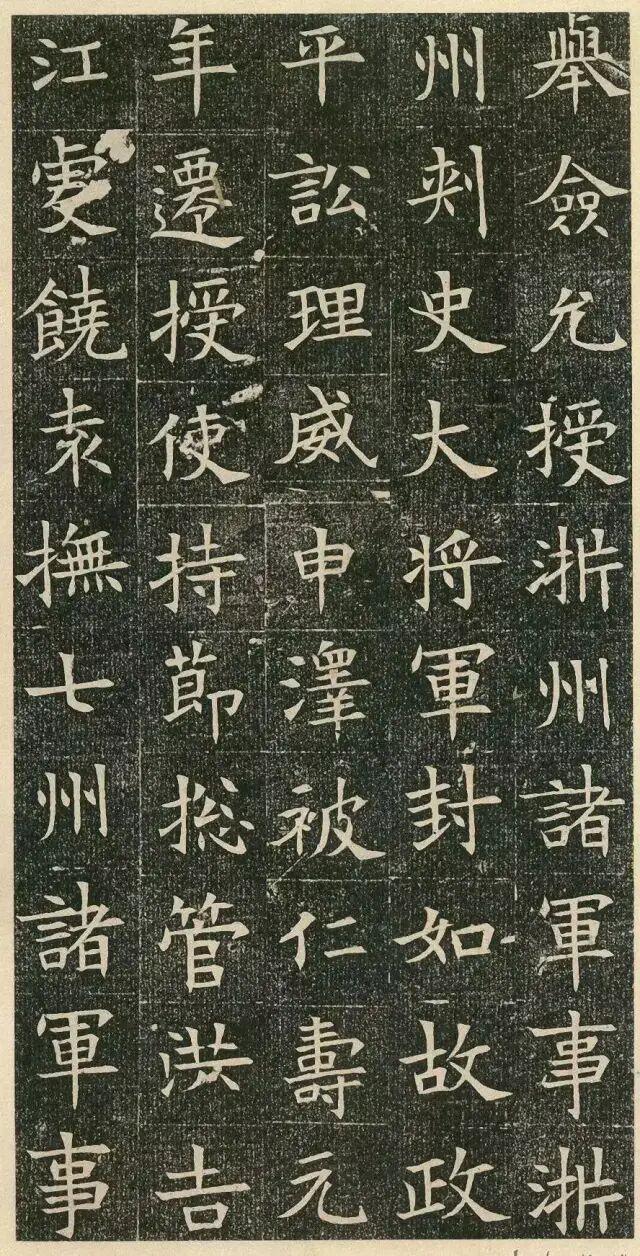 舉僉允授浙州諸軍事浙
州刺史大将軍封如故政
平訟理威申澤被仁壽元
年遷授使持節揔管洪吉
江虔饒袁撫七州諸軍事